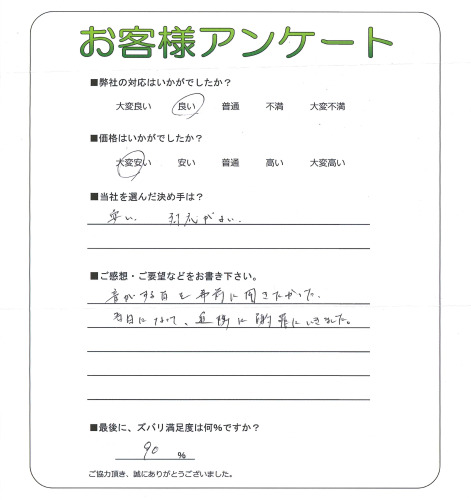 お客様アンケート
■弊社の対応はいかがでしたか?
大変良い 良い 普通 不満 大変不満
■価格はいかがでしたか?
大変安い 安い 普通 高い 大変高い
■当社を選んだ決め手は?
安い 対応がよい。
■ご感想・ご要望などをお書き下さい。
音がする旨を事前に聞きたかった。
当日になって、近隣に謝罪にいきました。
■最後に、ズバリ満足度は何%ですか?
90 %
ご協力頂き、誠にありがとうございました。